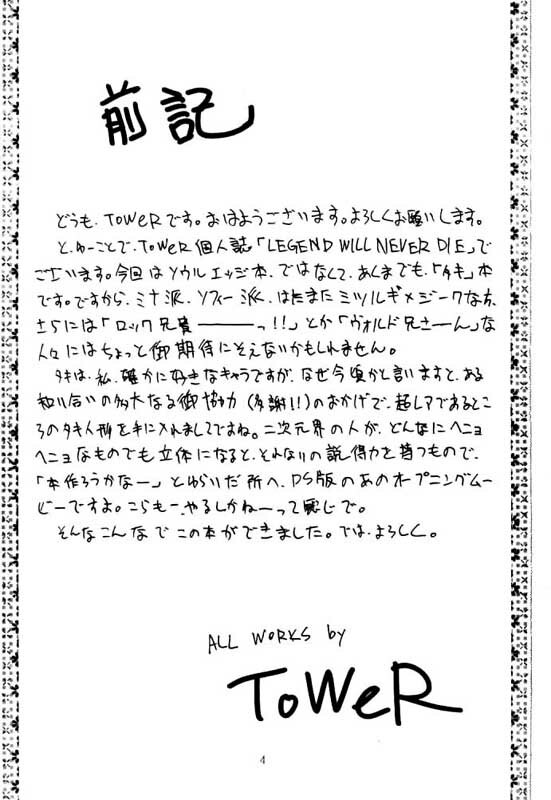 前記
どうも、ToWeRです。おはようございます。よろしくお願いします。
と、ゆーことで、ToWeR個人誌「LEGEND WILL NEVER DIE」で
ございます。今回はソウルエッジ本、ではなくして、あくまでも、「タキ」本
です。ですから、ミナ派、ソフィー派、はたまたミツルギ×ジークな方、
さらには「ロック兄貴―――っ!!」とか「ヴォルド兄さーん」な
人々にはちょっと御期待にそえないかもしれません。
タキは、私、確かに好きなキャラですが、なぜ今頃かと言いますと、ある
知り合いの多大なる御協力(多謝!!)のおかげで、超レアであるところ
のタキ人形を手に入れましてですね。二次元界の人が、どんなにヘニョ
ヘニョなものでも立体になると、それなりの説得力を持つもので、
「本作ろうかなー」とゆらいだ所へ、PS版のあのオープニングムー
ビーですよ。こらもー、やるしかねーって感じで。
そんなこんなでこの本ができました。では、よろしく。
ALL WORKS by
ToWeR
4